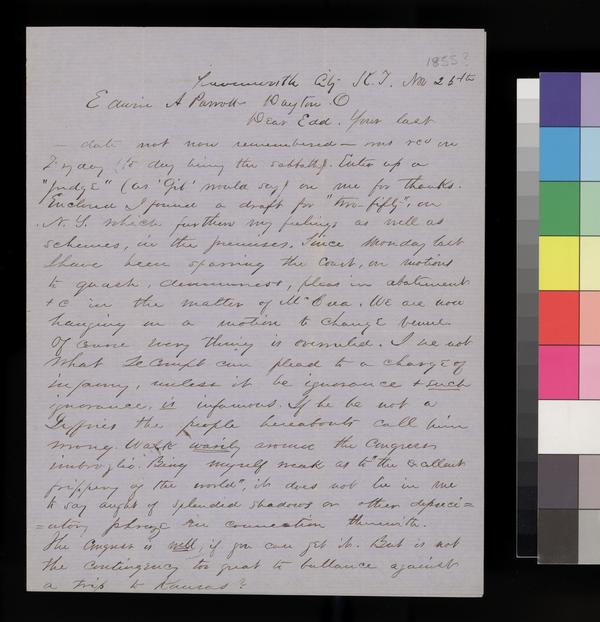 1855?
Leavenworth City K.T. Nov 25th
Edwin A Parrott Dayton O
Dear Edd. Your last
— date not now remembered — was rcd on
Friday (to day being the sabbath). Enter up a
"judge" (as "Gib" would say) on me for thanks.
Enclosed I found a draft for "two-fifty". on
N. Y. which furthers my feelings as well as
schemes, in the premises. Since Monday last
I have been sparring the Court, on motions
to quash, demurrers, pleas in abatement
+ c in the matter of McCrea. We are now
hanging on a motion to change venue
Of course every thing is overruled. I see not
What LeCompt can plead to a charge of
infamy, unless it be ignorance & such
ignorance, is infamous. If he be not a
Jeffries the people hereabouts call him
wrong. Walk warily around the Congress
imbroglio. Being myself weak as to "the excellent
frippery of the world", it does not lie in me
to say aught of splendid shadows or other
phrase in connection therewith.
The Congress is well; if you can get it. But is not
the contingency too great to ballance against
a trip to Kansas?